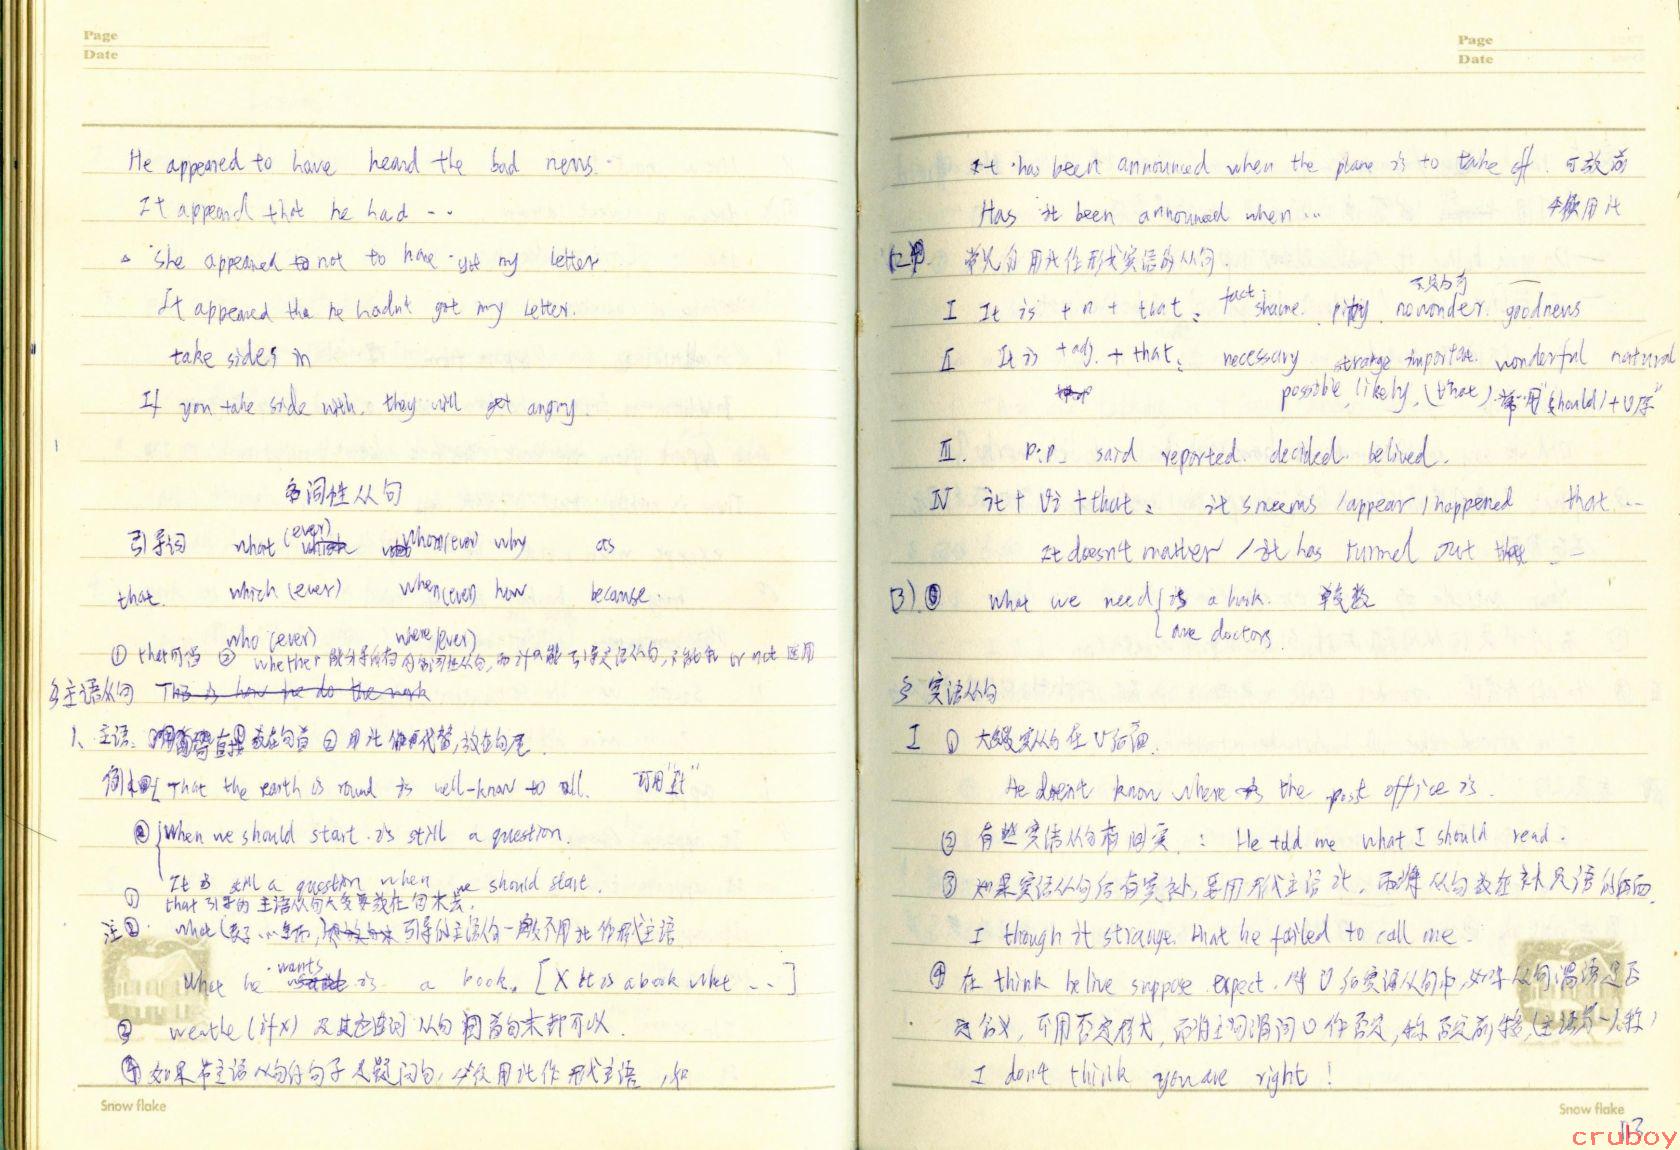 Page
Date
He appeared to have heard the bad news.
It appeard that he had ...
She appeared to not to have got my letter
It appeared tha he hadn't got my letter.
take sides in
If you take side with. they will get angry.
名词性从句
引导词 what (ever) whom(ever) why as
that. which (ever) when(ever) how because.
who (ever) where(ever)
① that可省 ② whether 能引导所有的名词性从句, 而if只能引导宾语从句, 不能和 or not 连用
主语从句 This is how he do the work
1、主语: 直接放在句首 ② 用it 代替, 放在句尾.
例 That the earth is round is well-know to all. 可用"it"
② When we should start is still a question.
It is still a question when we should start.
① that引导的主语从句大多要放在句末去.
注② what 引导的主语从句一般不用it作形式主语
What he wants is a book. [X It is a book what ...]
③ (if X) 及其它连词 从句 句首句末都可以.
④ 如果 主语从句的句子是疑问句, 必须用it作形式主语, 如
Snow flake
Page
Date
It has been announced when the plane is to take off. 可放前
Has it been announced when ... 必须用it
常见的用it作形式宾语的从句.
I It is + n + that: fact shame. pity. nowonder. goodnews
II It is + adj. + that: necessary strange importan. wonderful natural
possible, likely, (that) 常用"(should)+V原"
III. P.P. said reported. decided. belived.
IV it + Vi + that: it smeems /appear /happened that ...
It doesn't matter / it has turned out that ...
3) what we need { is a book. 单复数
are doctors.
宾语从句
I ① 大多数宾从句在V后面.
He doesnt know where is the post office is.
② 有些宾语从句有间宾. : He told me what I should read.
③ 如果宾语从句后有宾补, 要用形式主语it, 而将从句放在补足语的后面.
I though it strange that he failed to call me.
④ 在 think belive suppose expect. 等V后宾语从句中, 如果从句谓语是否
定含义, 不用否定形式, 而将主句谓词V作否定, 称否定前移, (主语第一人称)
I don't think you are right!
Snow flake
113
cruboy